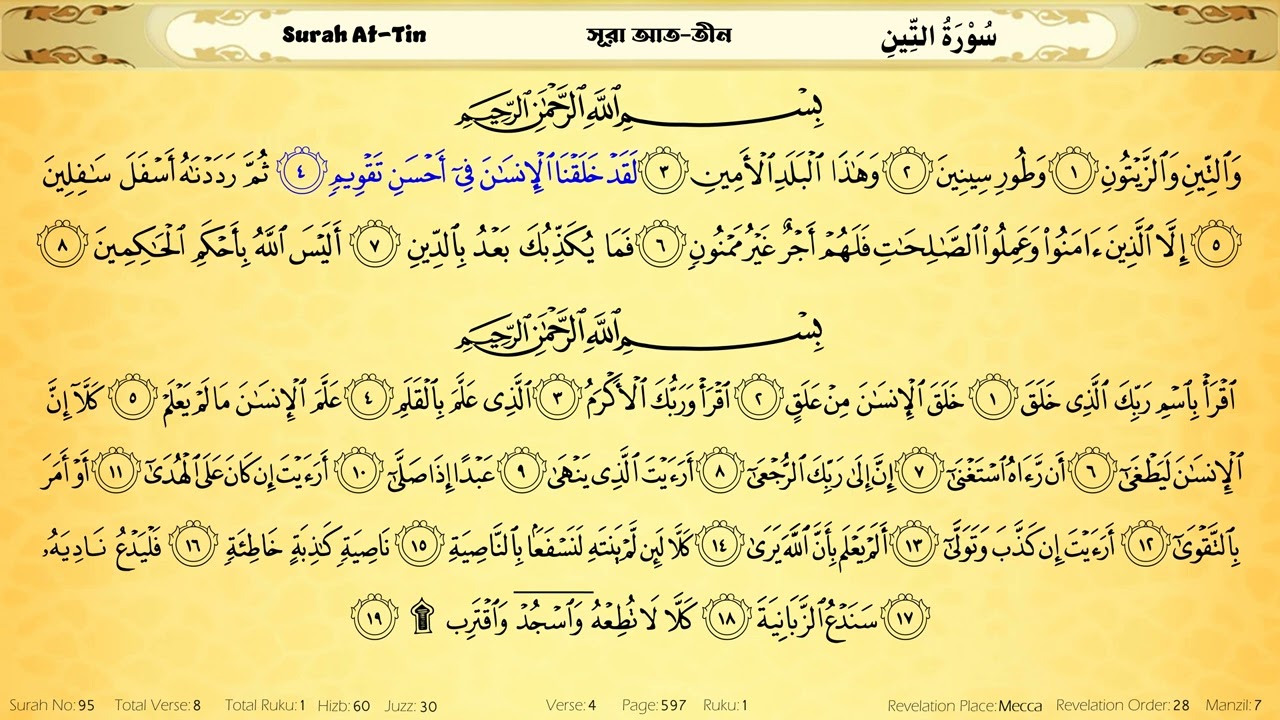 Surah At-Tin সূরা আত-তীন سُوْرَةُ التِّينِ
بِسْمِ ٱللَّهِ ٱلرَّحْمَٰنِ ٱلرَّحِيمِ
وَٱلتِّينِ وَٱلزَّيْتُونِ ١ وَطُورِ سِينِينَ ٢ وَهَٰذَا ٱلْبَلَدِ ٱلْأَمِينِ ٣ لَقَدْ خَلَقْنَا ٱلْإِنسَٰنَ فِىٓ أَحْسَنِ تَقْوِيمٍ ٤ ثُمَّ رَدَدْنَٰهُ أَسْفَلَ سَٰفِلِينَ
٥ إِلَّا ٱلَّذِينَ ءَامَنُوا۟ وَعَمِلُوا۟ ٱلصَّٰلِحَٰتِ فَلَهُمْ أَجْرٌ غَيْرُ مَمْنُونٍ ٦ فَمَا يُكَذِّبُكَ بَعْدُ بِٱلدِّينِ ٧ أَلَيْسَ ٱللَّهُ بِأَحْكَمِ ٱلْحَٰكِمِينَ ٨
بِسْمِ ٱللَّهِ ٱلرَّحْمَٰنِ ٱلرَّحِيمِ
ٱقْرَأْ بِٱسْمِ رَبِّكَ ٱلَّذِى خَلَقَ ١ خَلَقَ ٱلْإِنسَٰنَ مِنْ عَلَقٍ ٢ ٱقْرَأْ وَرَبُّكَ ٱلْأَكْرَمُ ٣ ٱلَّذِى عَلَّمَ بِٱلْقَلَمِ ٤ عَلَّمَ ٱلْإِنسَٰنَ مَا لَمْ يَعْلَمْ ٥ كَلَّآ إِنَّ
ٱلْإِنسَٰنَ لَيَطْغَىٰٓ ٦ أَن رَّءَاهُ ٱسْتَغْنَىٰٓ ٧ إِنَّ إِلَىٰ رَبِّكَ ٱلرُّجْعَىٰٓ ٨ أَرَءَيْتَ ٱلَّذِى يَنْهَىٰ ٩ عَبْدًا إِذَا صَلَّىٰٓ ١٠ أَرَءَيْتَ إِن كَانَ عَلَى ٱلْهُدَىٰٓ ١١ أَوْ أَمَرَ
بِٱلتَّقْوَىٰٓ ١٢ أَرَءَيْتَ إِن كَذَّبَ وَتَوَلَّىٰٓ ١٣ أَلَمْ يَعْلَم بِأَنَّ ٱللَّهَ يَرَىٰ ١٤ كَلَّا لَئِن لَّمْ يَنتَهِ لَنَسْفَعًۢا بِٱلنَّاصِيَةِ ١٥ نَاصِيَةٍ كَٰذِبَةٍ خَاطِئَةٍ ١٦ فَلْيَدْعُ نَادِيَهُۥ
١٧ سَنَدْعُ ٱلزَّبَانِيَةَ ١٨ كَلَّا لَا تُطِعْهُ وَٱسْجُدْ وَٱقْتَرِب ۩ ١٩
Surah No: 95 Total Verse: 8 Total Ruku: 1 Hizb: 60 Juzz: 30 Verse: 4 Page: 597 Ruku: 1 Revelation Place: Mecca Revelation Order: 28 Manzil: 7